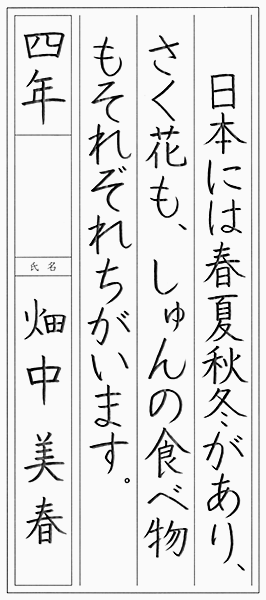 日本には春夏秋冬があり、
さく花も、しゅんの食べ物
もそれぞれちがいます。
四年
氏名
畑中美春